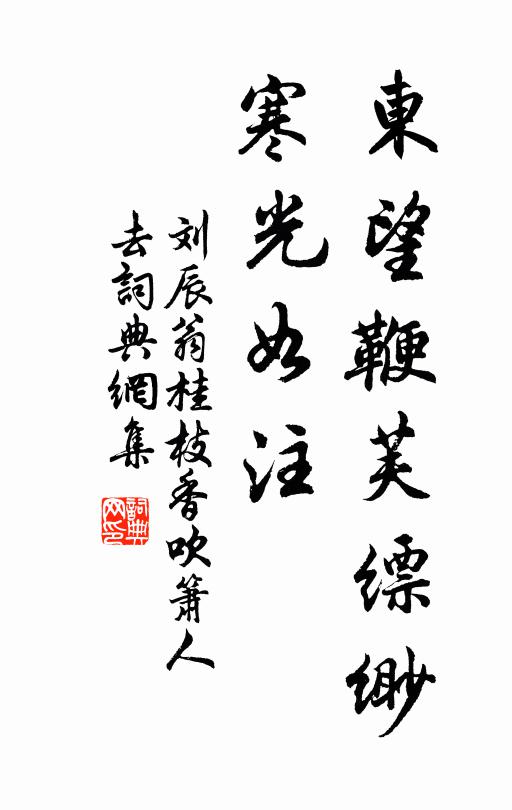 東望鞭芙縹緲
寒光如注
刘辰翁桂枝香吹簫人
去詞典網集
詞典
网印